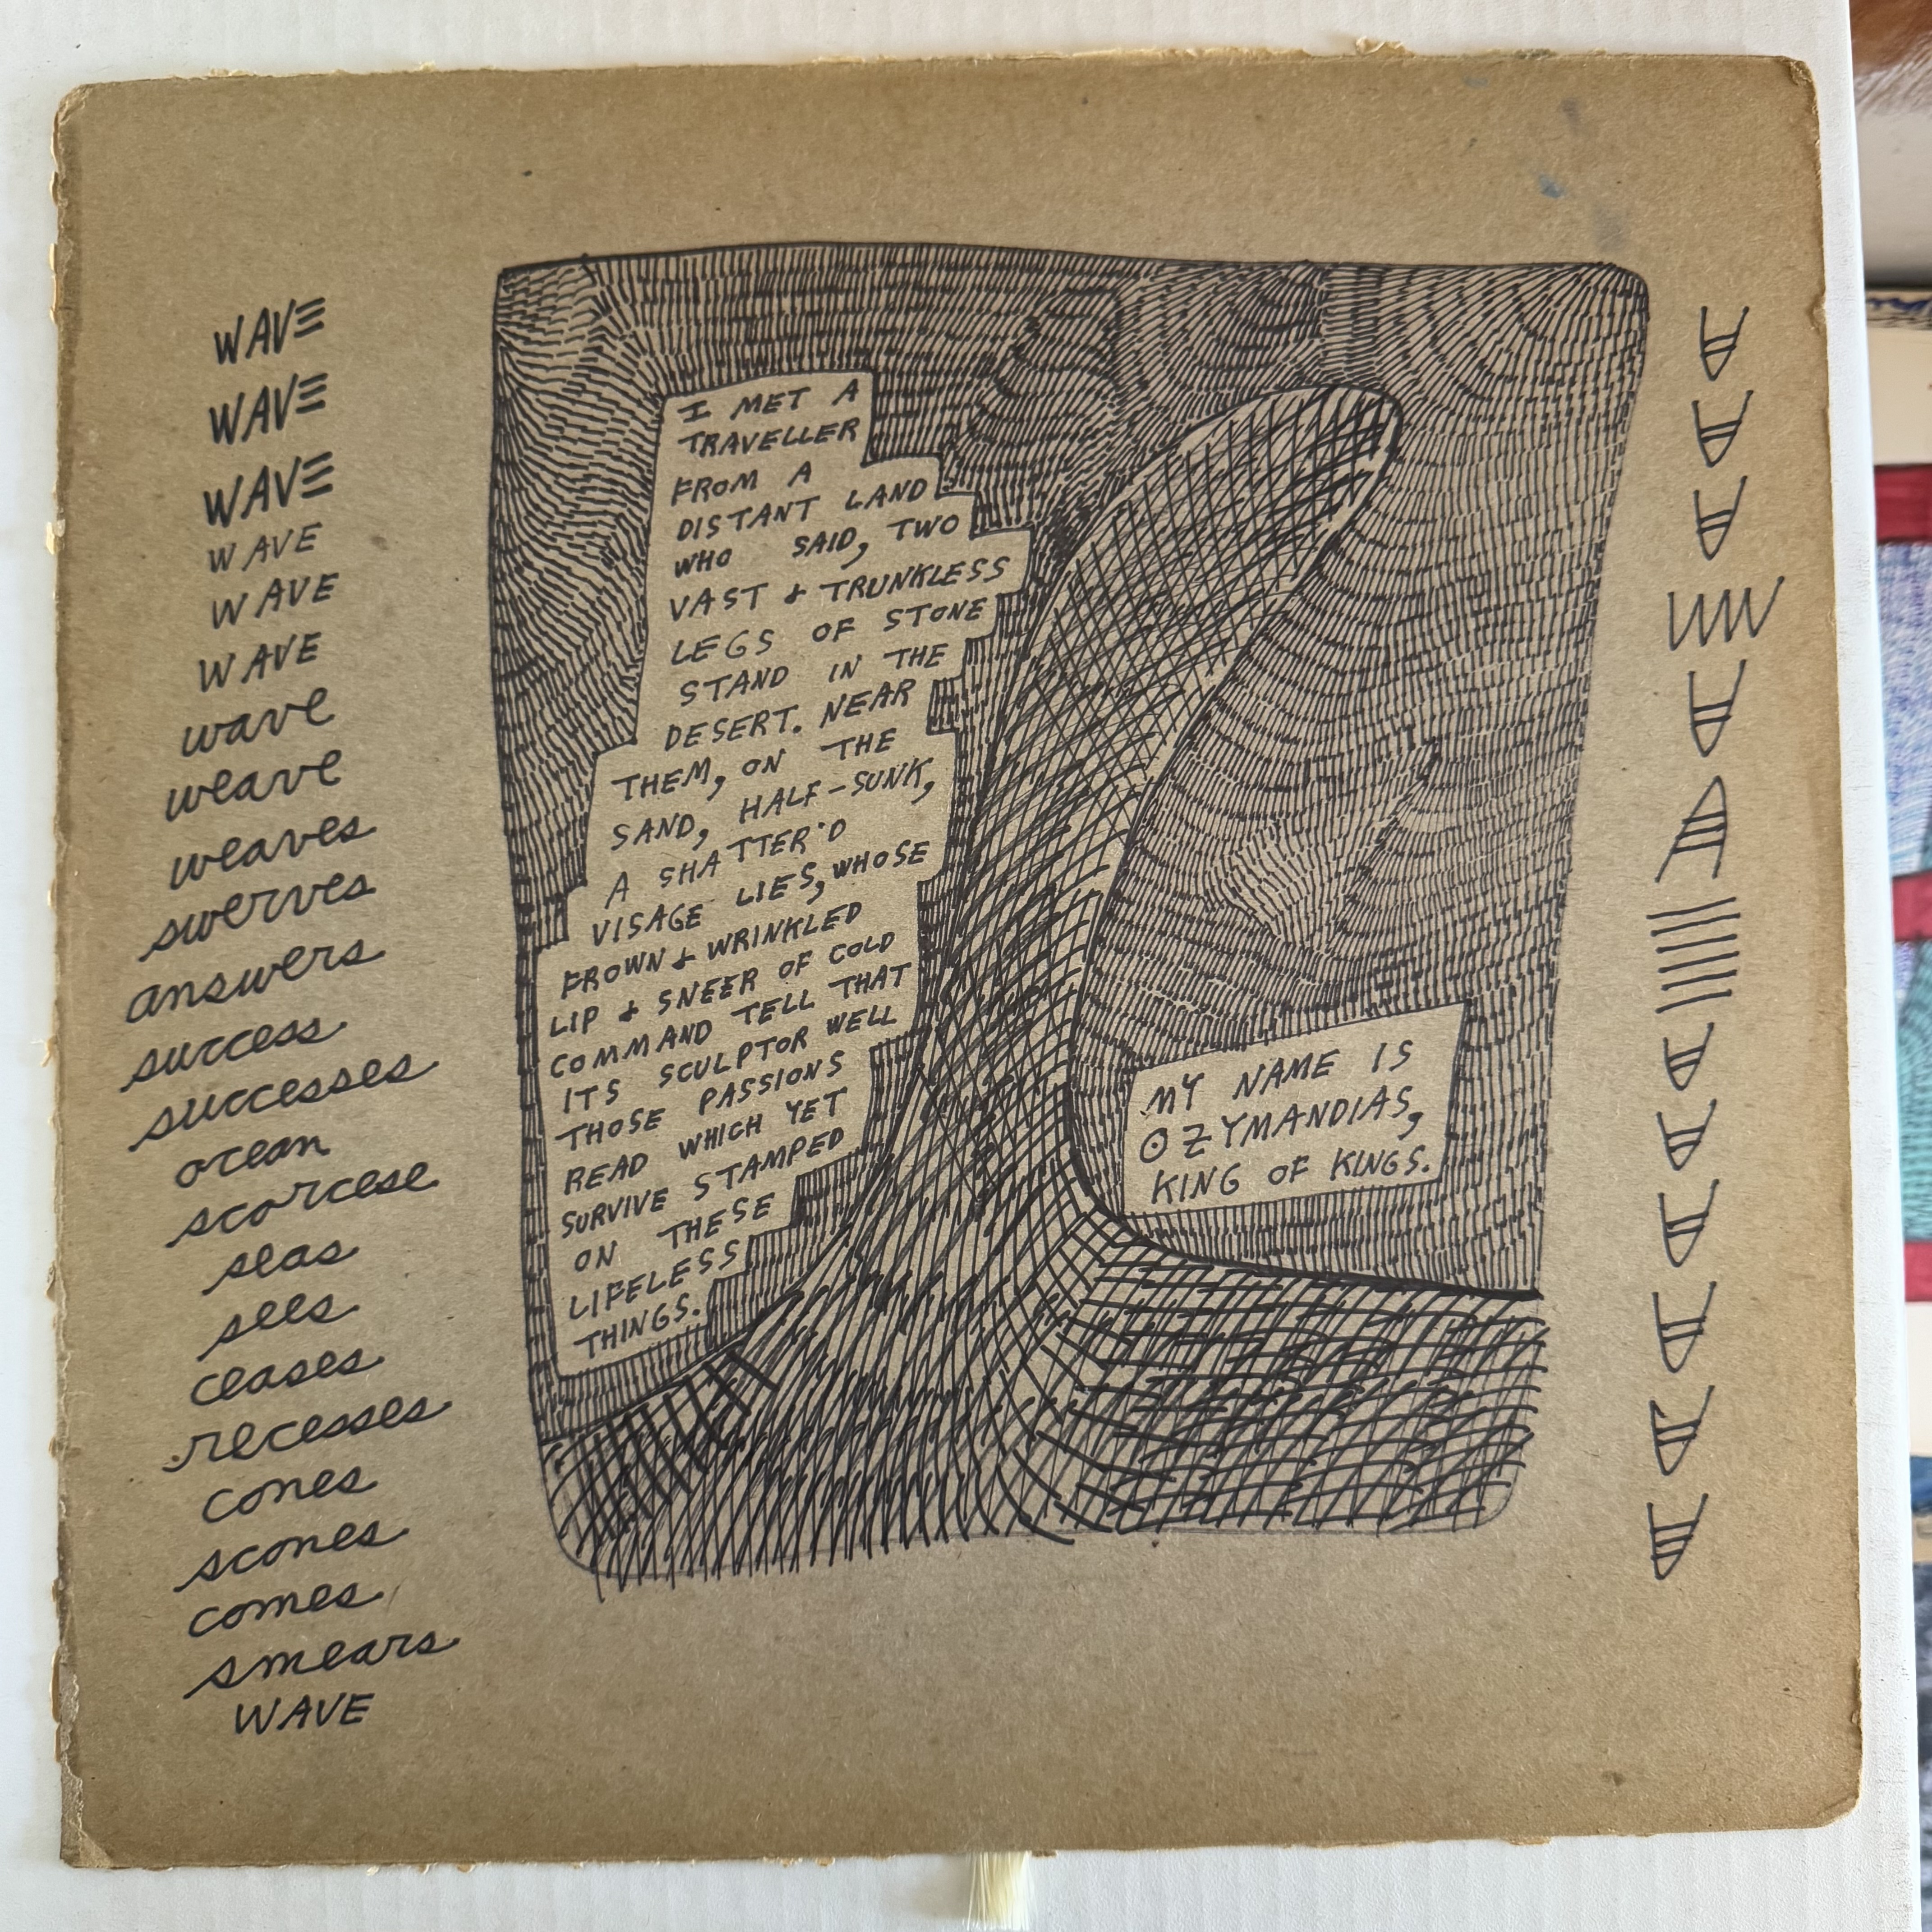 WAVE
WAVE
WAVE
WAVE
WAVE
WAVE
wave
weave
weaves
swerves
answers
success
successes
ocean
scorcese
seas
sees
ceases
recesses
cones
scones
comes
smears
WAVE
I MET A
TRAVELLER
FROM A
DISTANT LAND
WHO SAID, TWO
VAST & TRUNKLESS
LEGS OF STONE
STAND IN THE
DESERT. NEAR
THEM, ON THE
SAND, HALF-SUNK,
A SHATTER'D
VISAGE LIES, WHOSE
FROWN & WRINKLED
LIP & SNEER OF COLD
COMMAND TELL THAT
ITS SCULPTOR WELL
THOSE PASSIONS
READ WHICH YET
SURVIVE STAMPED
ON THESE
LIFELESS
THINGS.
MY NAME IS
OZYMANDIAS,
KING OF KINGS.